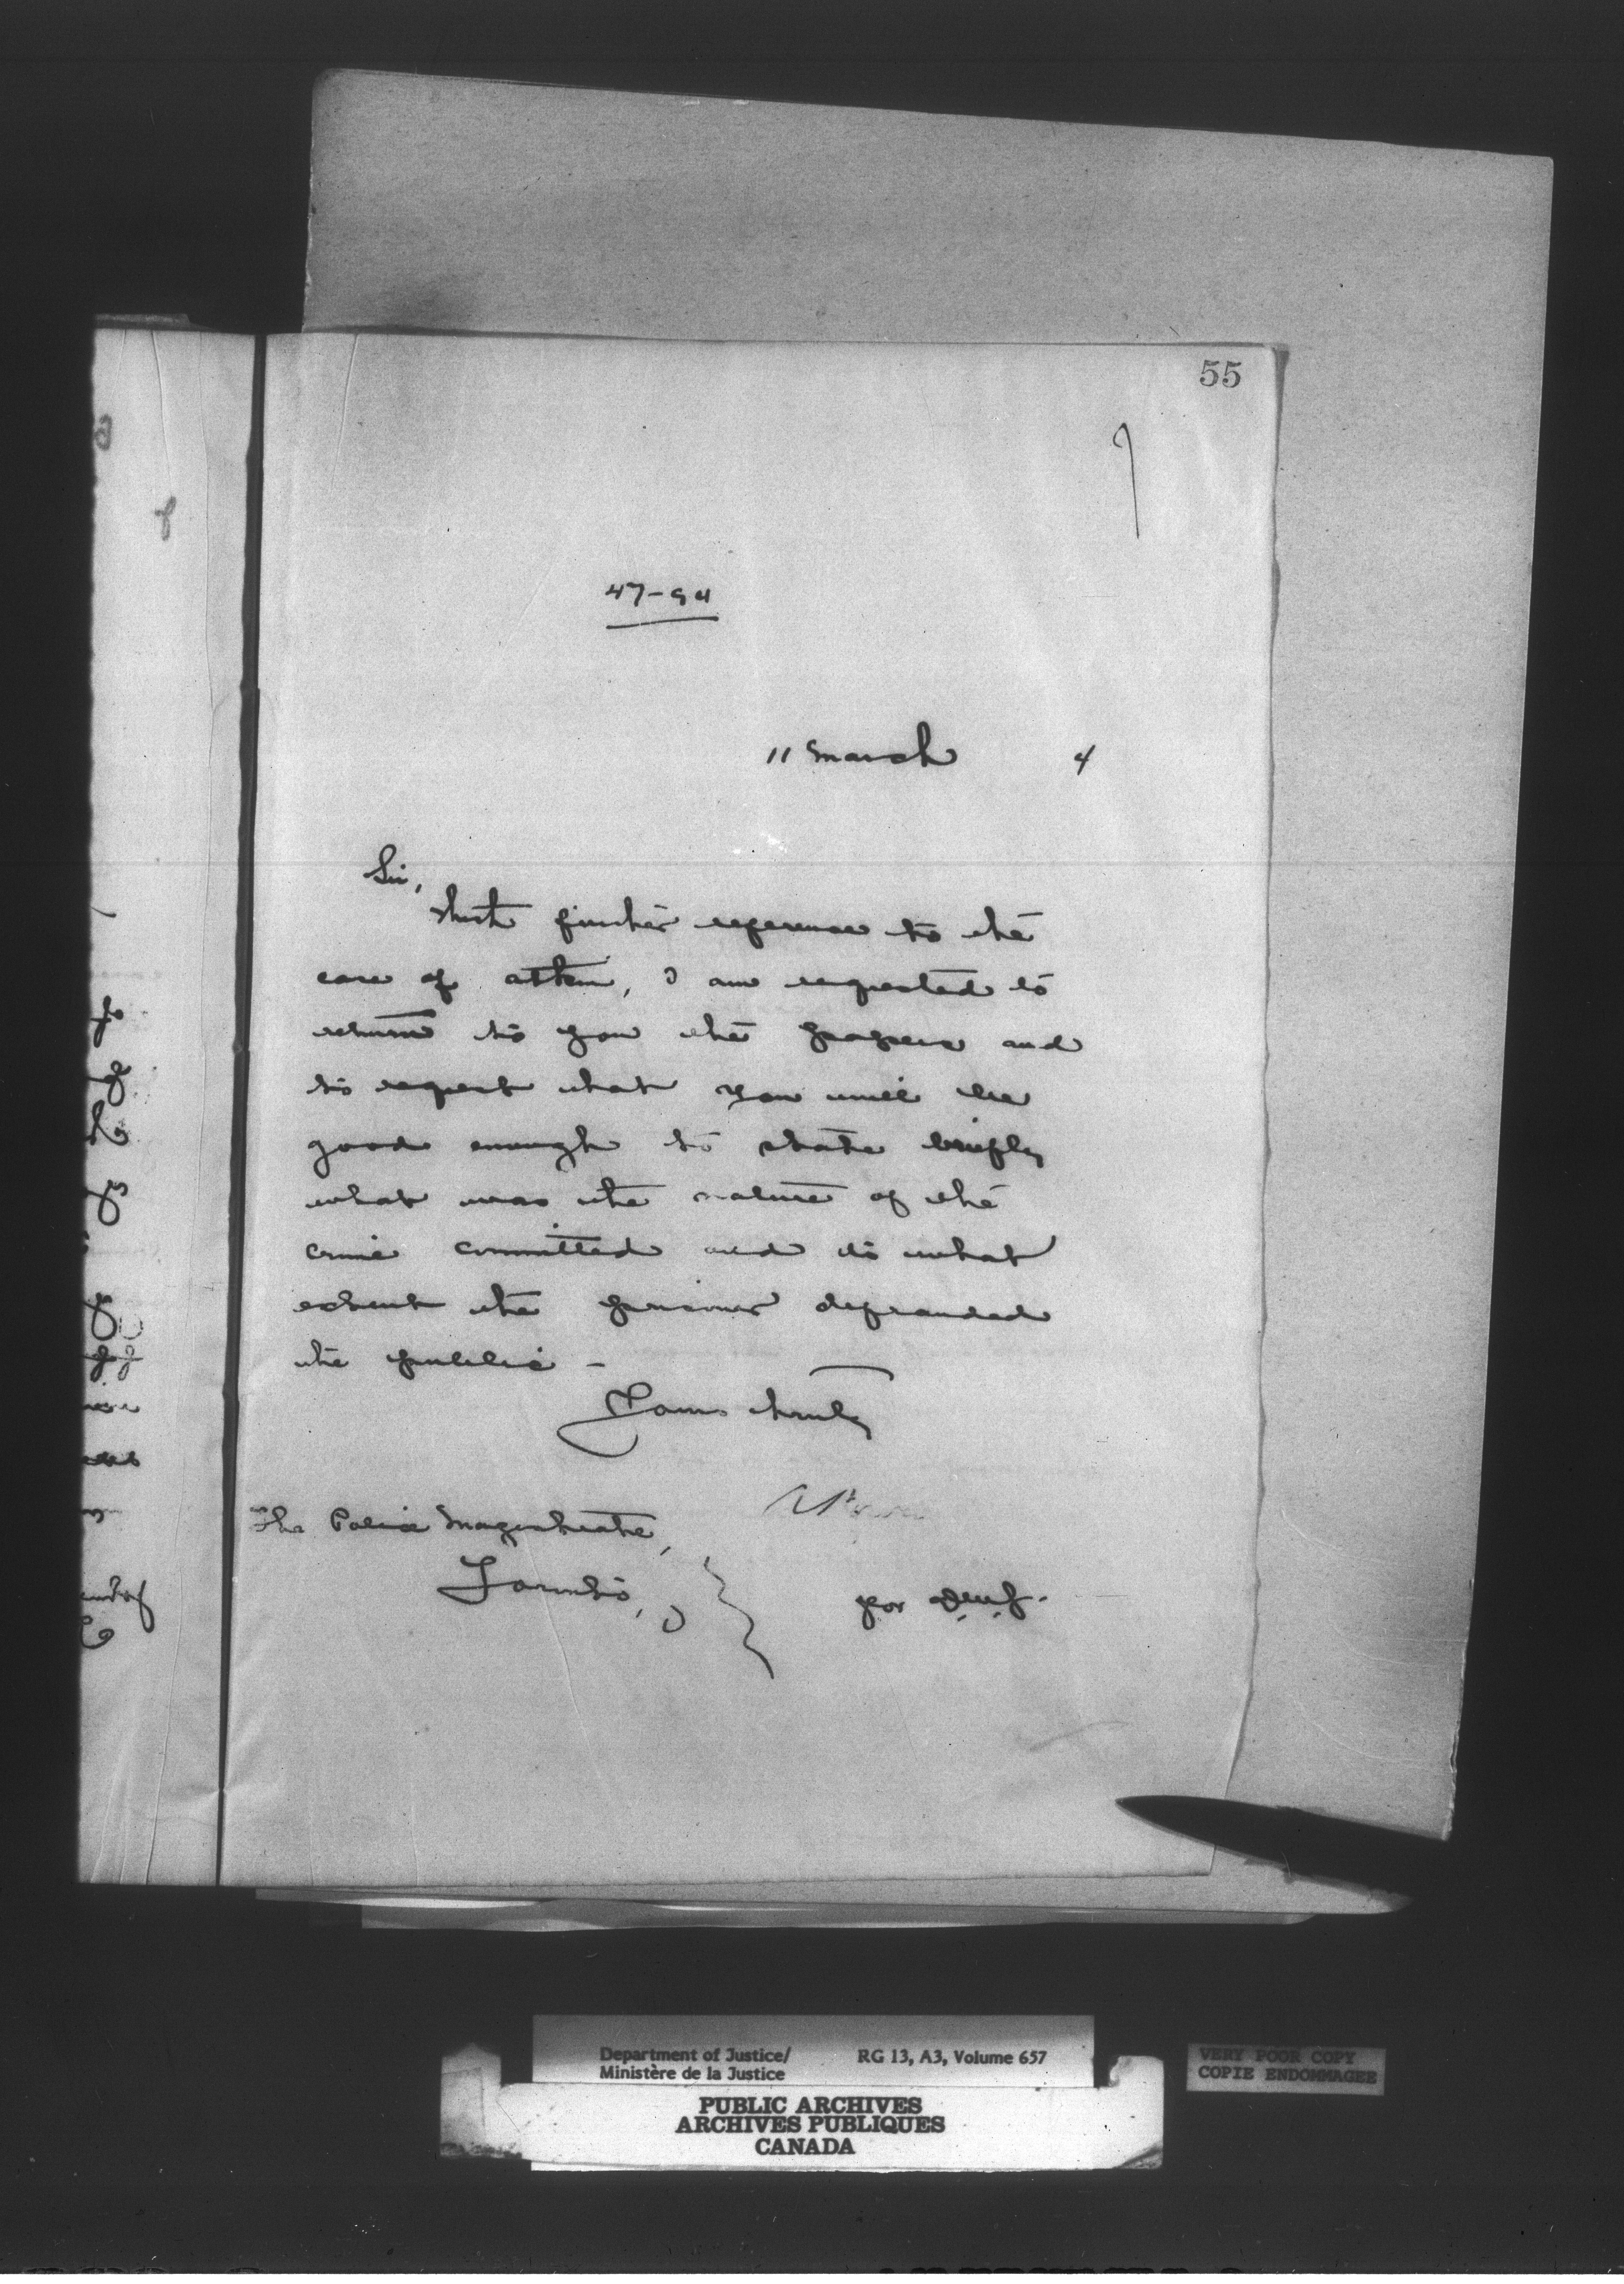 55
47-94
11 March 4
Sir,
With further reference to the
case of , I am requested to
return to you the papers and
to request that you will be
good enough to state briefly
what was the nature of the
crime committed and to what
extent the prisoner defrauded
the public -
Yours truly
The Police Magistrate,
Toronto,
for D.M.J.
Department of Justice/
Ministère de la Justice
RG 13, A3, Volume 657
VERY POOR COPY
COPIE ENDOMMAGEE
PUBLIC ARCHIVES
ARCHIVES PUBLIQUES
CANADA